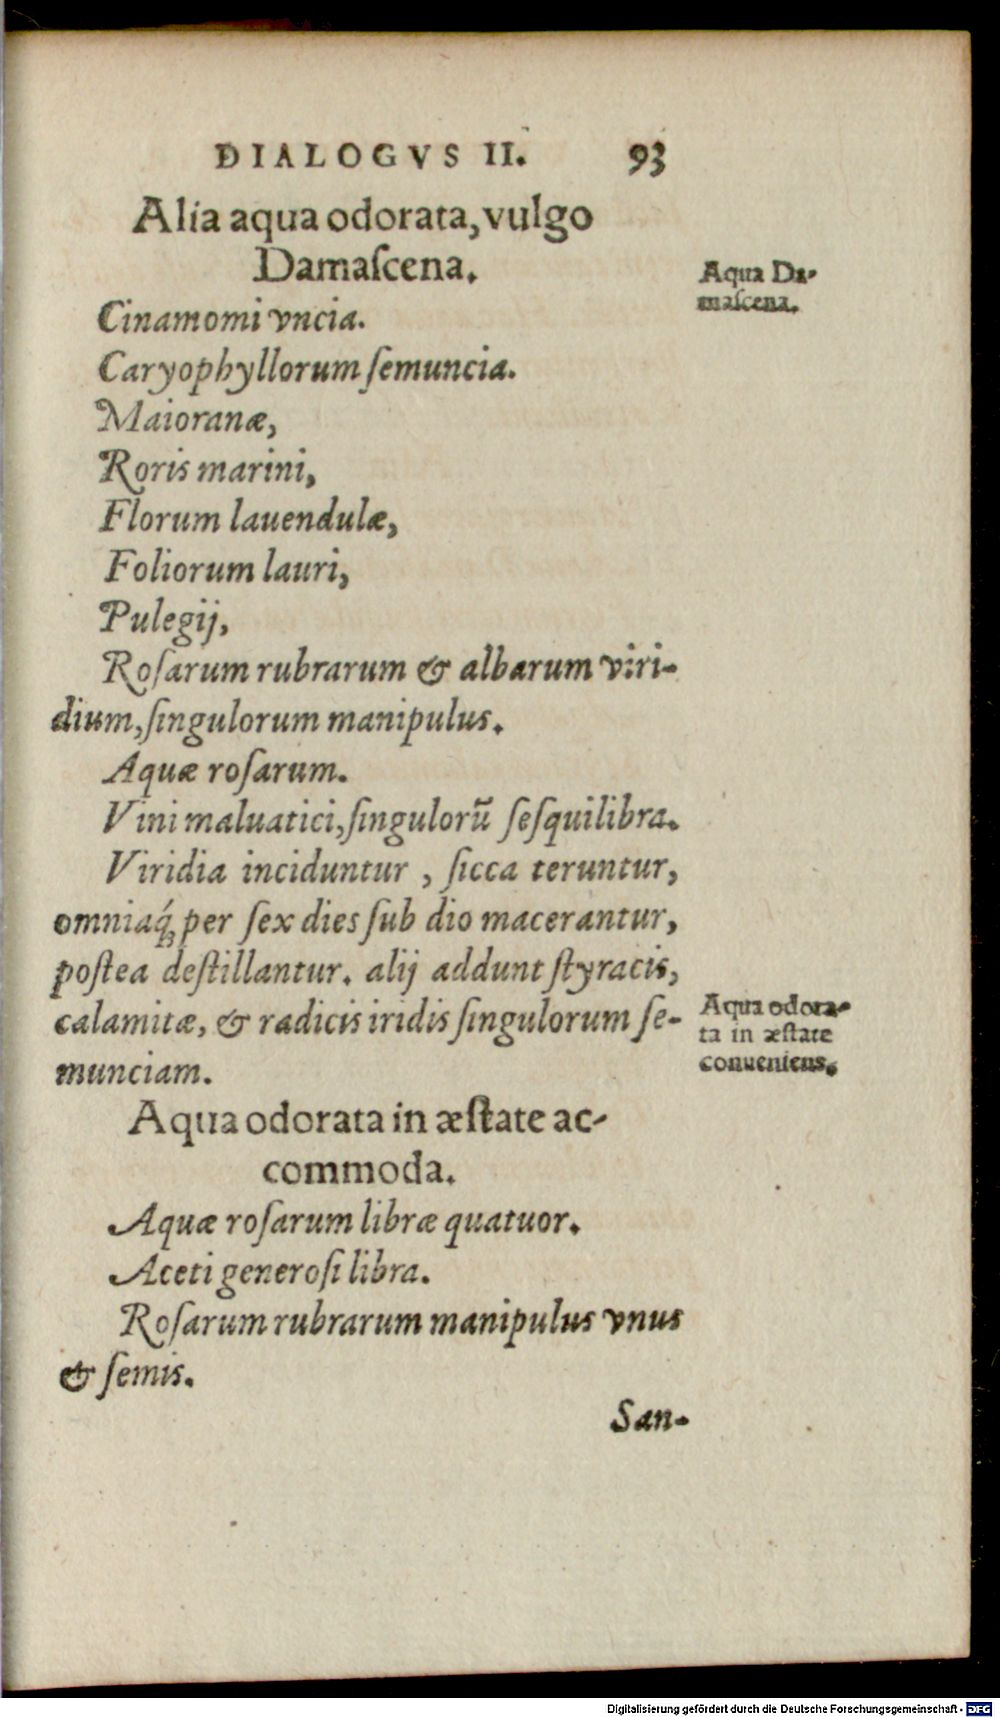 DIALOGVS II. 93
Alia aqua odorata, vulgo
Damaſcena.
Aqua Da-
maſcena.
Cinamomi vncia.
Caryophyllorum ſemuncia.
Maioranæ,
Roris marini,
Florum lauendulæ,
Foliorum lauri,
Pulegij,
Roſarum rubrarum & albarum viri-
dium, ſingulorum manipulus.
Aquæ roſarum.
Vini maluatici, ſingulorū ſeſquilibra.
Viridia inciduntur , ſicca teruntur,
omniaq́; per ſex dies ſub dio macerantur,
poſtea deſtillantur. alij addunt ſtyracis,
calamitæ, & radicis iridis ſingulorum ſe-
munciam.
Aqua odora-
ta in æſtate
conueniens.
Aqua odorata in æſtate ac-
commoda.
Aquæ roſarum libræ quatuor.
Aceti generoſi libra.
Roſarum rubrarum manipulus vnus
& ſemis.
San-
Digitalisierung gefördert durch die Deutsche Forschungsgemeinschaft - DFG